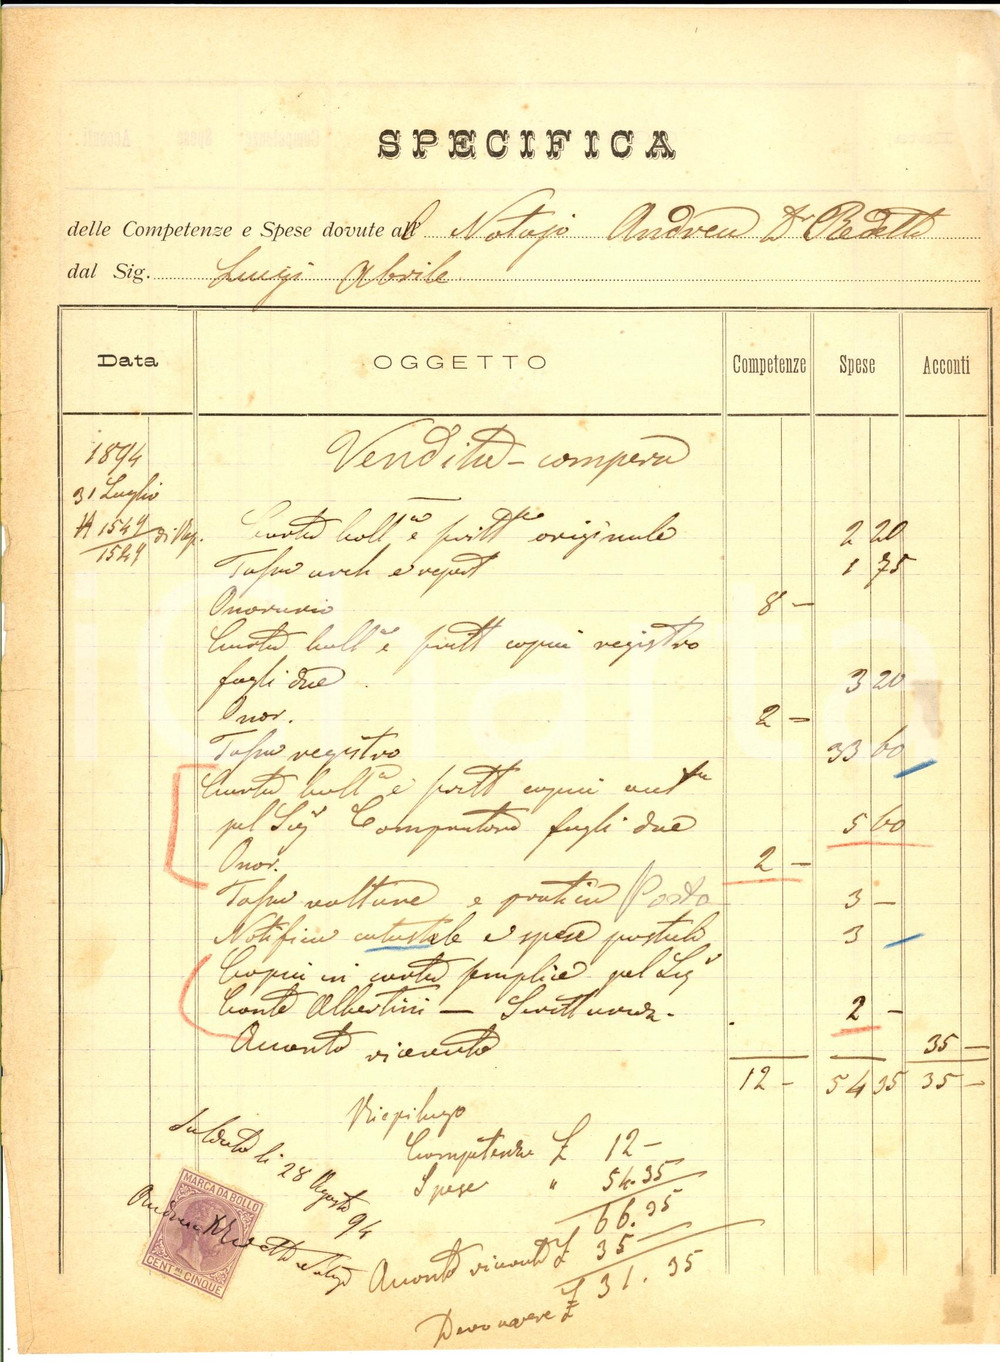 SPECIFICA
delle Competenze e Spese dovute all Notajo Andrea Dr Redetti
dal Sig. Luigi Abrile
Data OGGETTO Competenze Spese Acconti
1894 Vendita - compera
31 Luglio
N 1549 di Rep. Carta boll e scritt originale 2 20
1529
Tassa arch e repert 1 75
Onorario 8 -
Carta boll e scritt copia registro
fogli due 3 20
Onor. 2 -
Tassa registro 33 60
Carta boll e scritt copia aut
pel Sig Compratore fogli due 5 60
Onor. 2 -
Tassa volture e pratica Posta 3 -
Notifica catastale e spese postali 3
Copia in carta semplice pel Sig
Conte Albertini - Scritturaz. 2 -
Acconto ricevuto 35 -
12 - 54 35 35 -
Riepilogo
Competenze £ 12 -
Spese " 54.35
66.35
Acconto ricevuto £ 35
Devo avere £ 31.35
Saldato li 28 Agosto
94
Andrea Dr Redetti Notajo
MARCA DA BOLLO
CENT.MI CINQUE